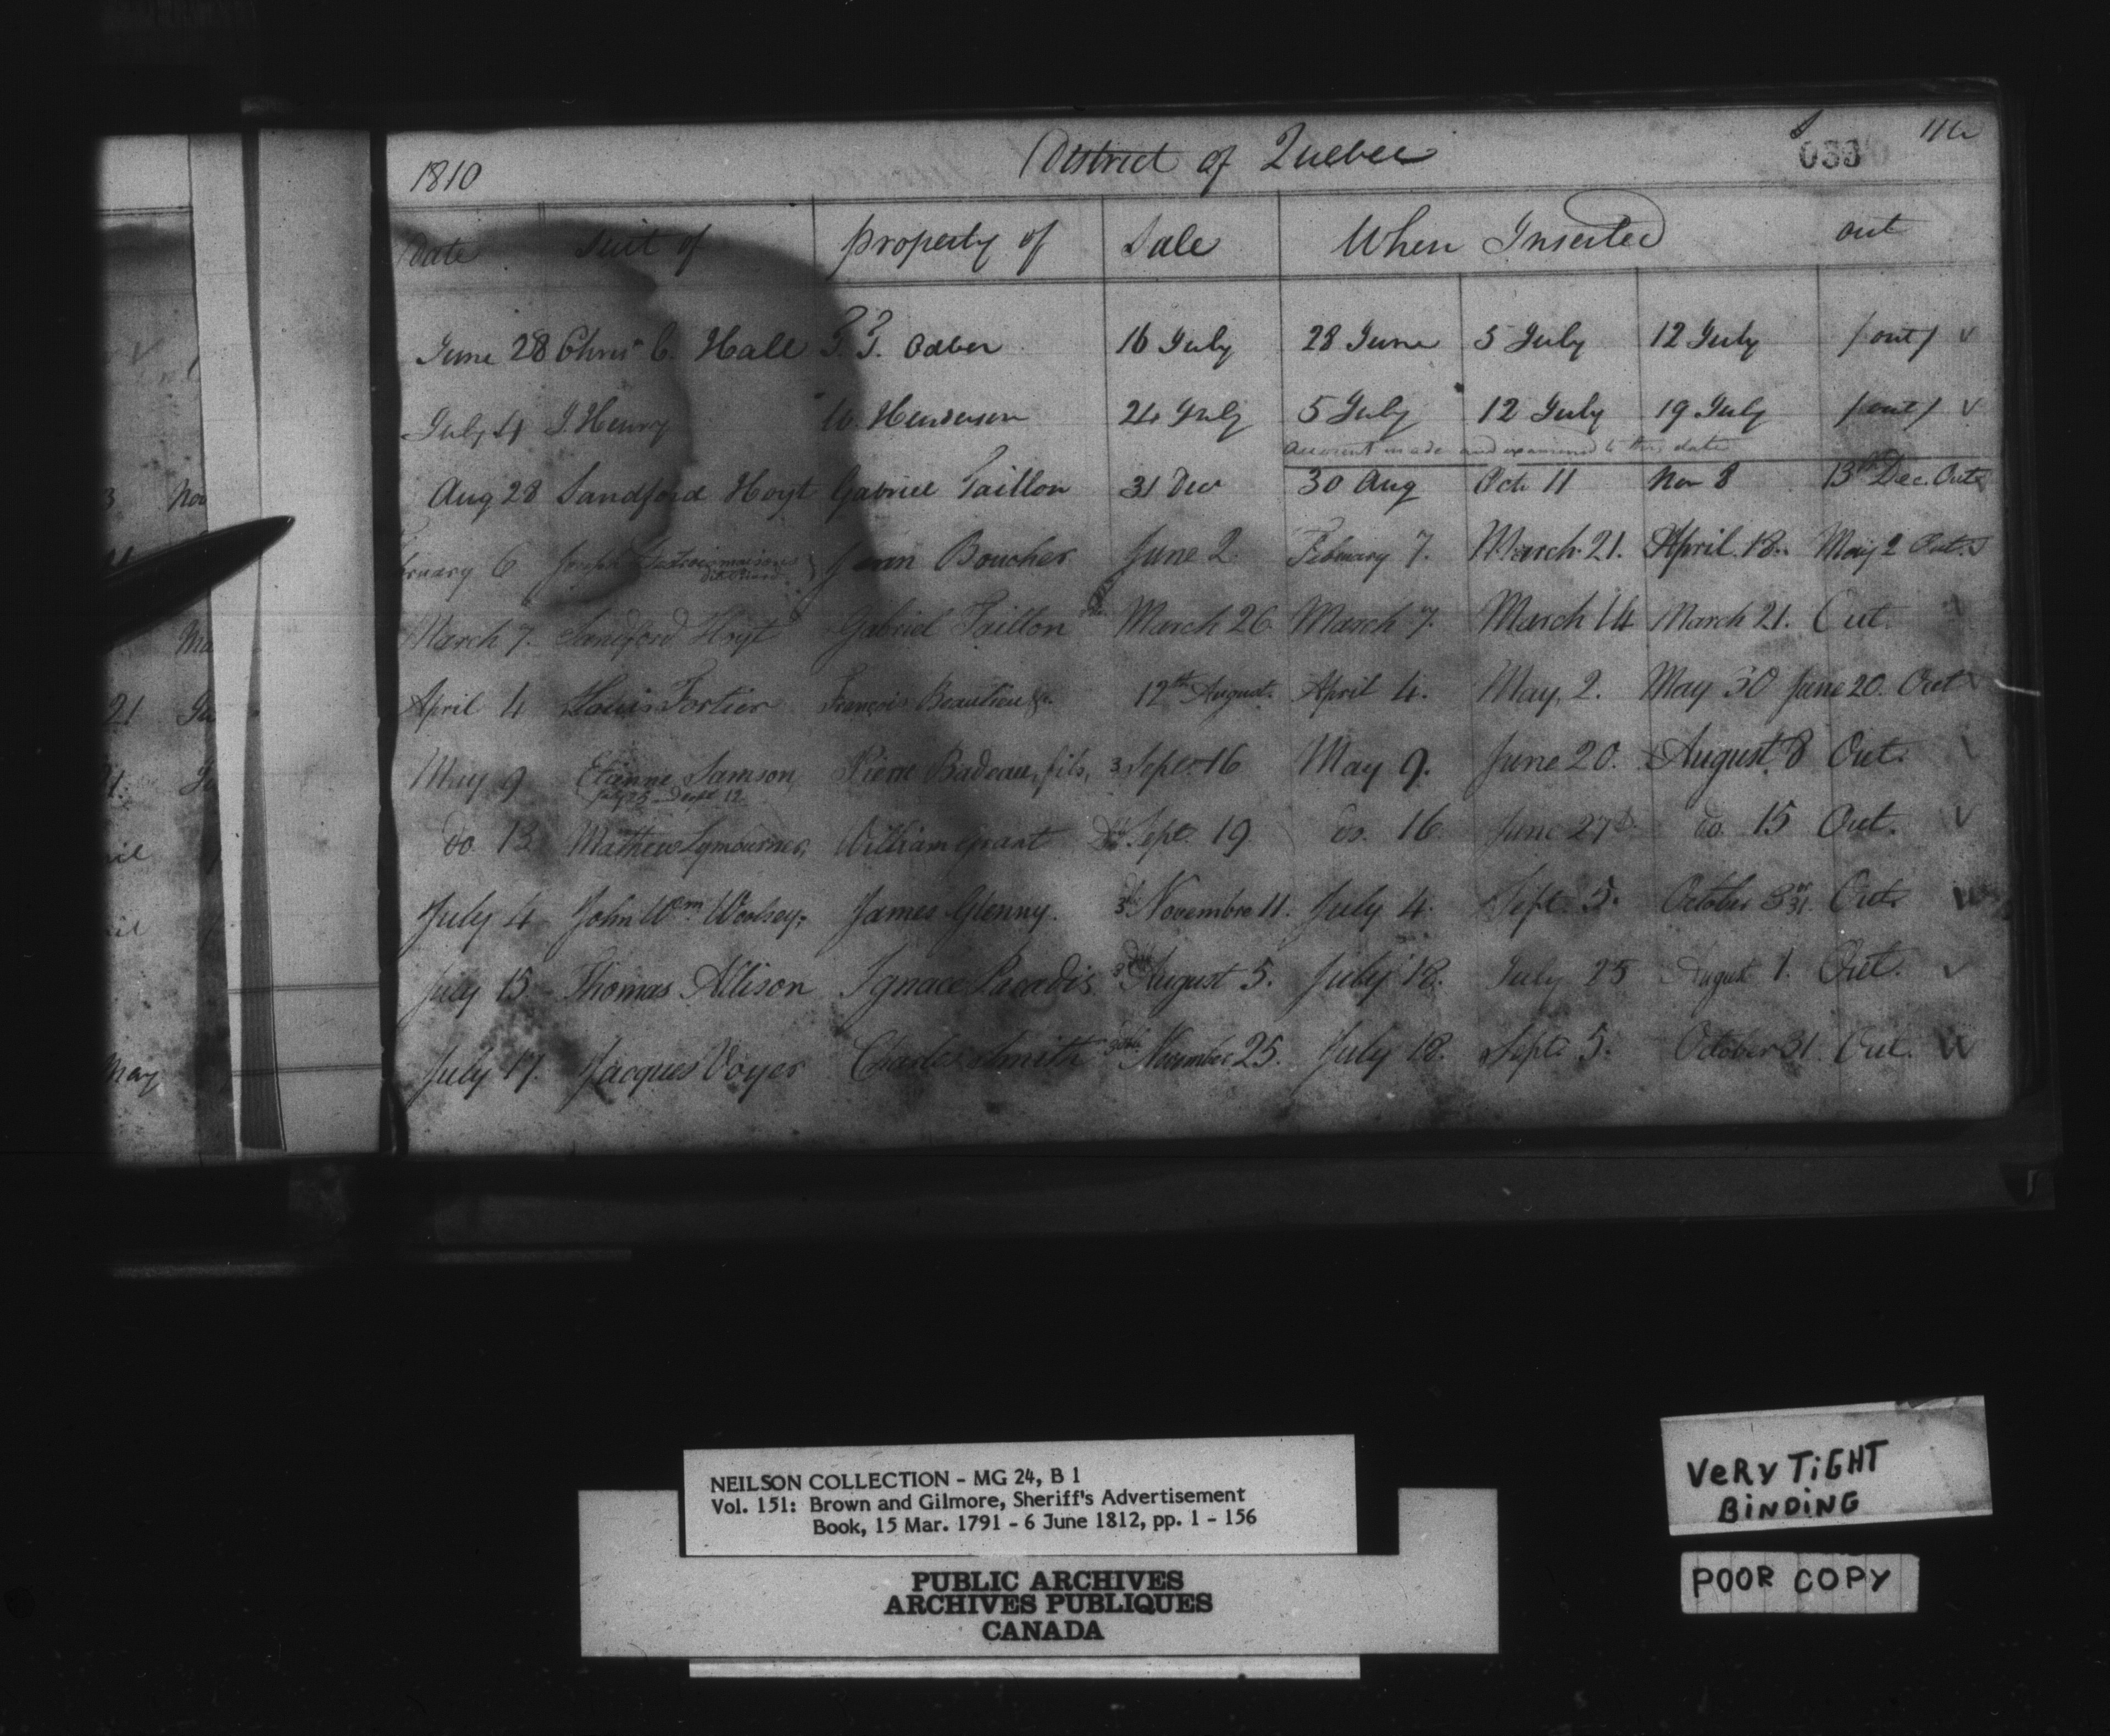 1810 District of Quebec 033 116
Date Suit of property of Sale When Inserted out
June 28 Chris C. Hall Odber 16 July 28 June 5 July 12 July /out/ v
July 4 J. Henry W. Henderson 24 July 5 July 12 July 19 July /out/ v
account made and examined to this date
Aug 28 Sandford Hoyt Gabriel Taillon 31 Dec 30 Aug Oct 11 Nov 8 13th Dec. Out
6 Joseph Boucher June 2. February 7. March 21. April 18. May 2 Out.
March 7. Sandford Hoyt Gabriel Taillon March 26. March 7. March 14 March 21. Out.
April 4 Louis Fortier François Beaulieu &c. 12th August. April 4. May, 2. May 30 June 20. Out
May 9 Etienne Samson, Pierre Badeau, fils, 3 Sept. 16 May 9. June 20. August 8 Out.
July 25 Sept 12.
do. 13 Mathew Lymburner, William Grant Sept. 19 do. 16 June 27 do. 15 Out. v
July 4 John Wm. Woolsey, James Glenny. Novembre 11. July 4. Sept. 5. October 31. Out.
July 15 Thomas Allison Ignace Paradis August 5. July 18. July 25 August 1. Out. v
July 17. Jacques Voyer Charles Smith November 25. July 18. Sept. 5. October 31. Out.
3 Nov
Ma
21
May
NEILSON COLLECTION - MG 24, B 1
Vol. 151: Brown and Gilmore, Sheriff's Advertisement
Book, 15 Mar. 1791 - 6 June 1812, pp. 1 - 156
PUBLIC ARCHIVES
ARCHIVES PUBLIQUES
CANADA
VERY TIGHT
BINDING
POOR COPY